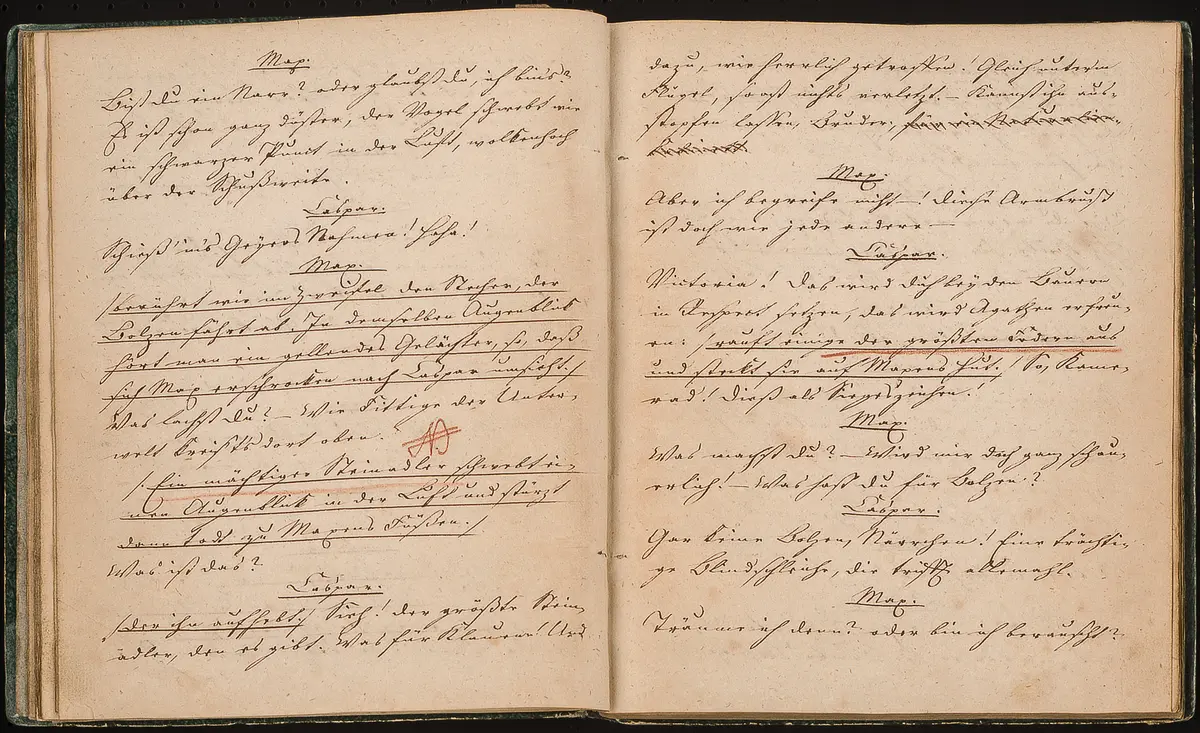 Max.
Bist du ein Narr? oder glaubst du, ich bin's?
Es ist schon ganz düster, der Vogel schwebt wie
ein schwarzer Punct in der Luft, wolkenhoch
über der Schußweite.
Caspar.
Schieß' in's Geyers Nahmen! Haha!
Max.
/berührt wie im Zweifel den Stecher, der
Bolzen fährt ab. In demselben Augenblik
hört man ein gellendes Gelächter, so, daß
sich Max erschrocken nach Caspar umsieht./
Was lachst du? – Wie Fittige der Unter-
welt kreist's dort oben.
/: Ein mächtiger Steinadler schwebt ei-
nen Augenblik in der Luft und stürzt
dann todt zu Maxens Füßen./
Was ist das?
Caspar.
/der ihn aufhebt/ Sieh! der größte Stein-
adler, den es gibt. Was für Klauen! Und
dazu, wie herrlich getroffen! Gleich unterm
Flügel, sonst nichts verletzt. – Kannst ihn aus-
stopfen lassen, Bruder, für ein
Max.
Aber ich begreife nicht –! diese Armbrust
ist doch wie jede andere –
Caspar.
Victoria! Das wird dich bey den Bauern
in Respect setzen, das wird Agathen erfreu-
en: /rauft einige der größten Federn aus
und stekt sie auf Maxens Hut./ So, Kame-
rad! dieß als Siegeszeichen!
Max.
Was machst du? – Wird mir doch ganz schau-
erlich! – Was hast du für Bolzen?
Caspar.
Gar keine Bolzen, Närrchen! Eine trächti-
ge Blindschleiche, die trifft allemahl.
Max.
Träume ich denn? oder bin ich berauscht?